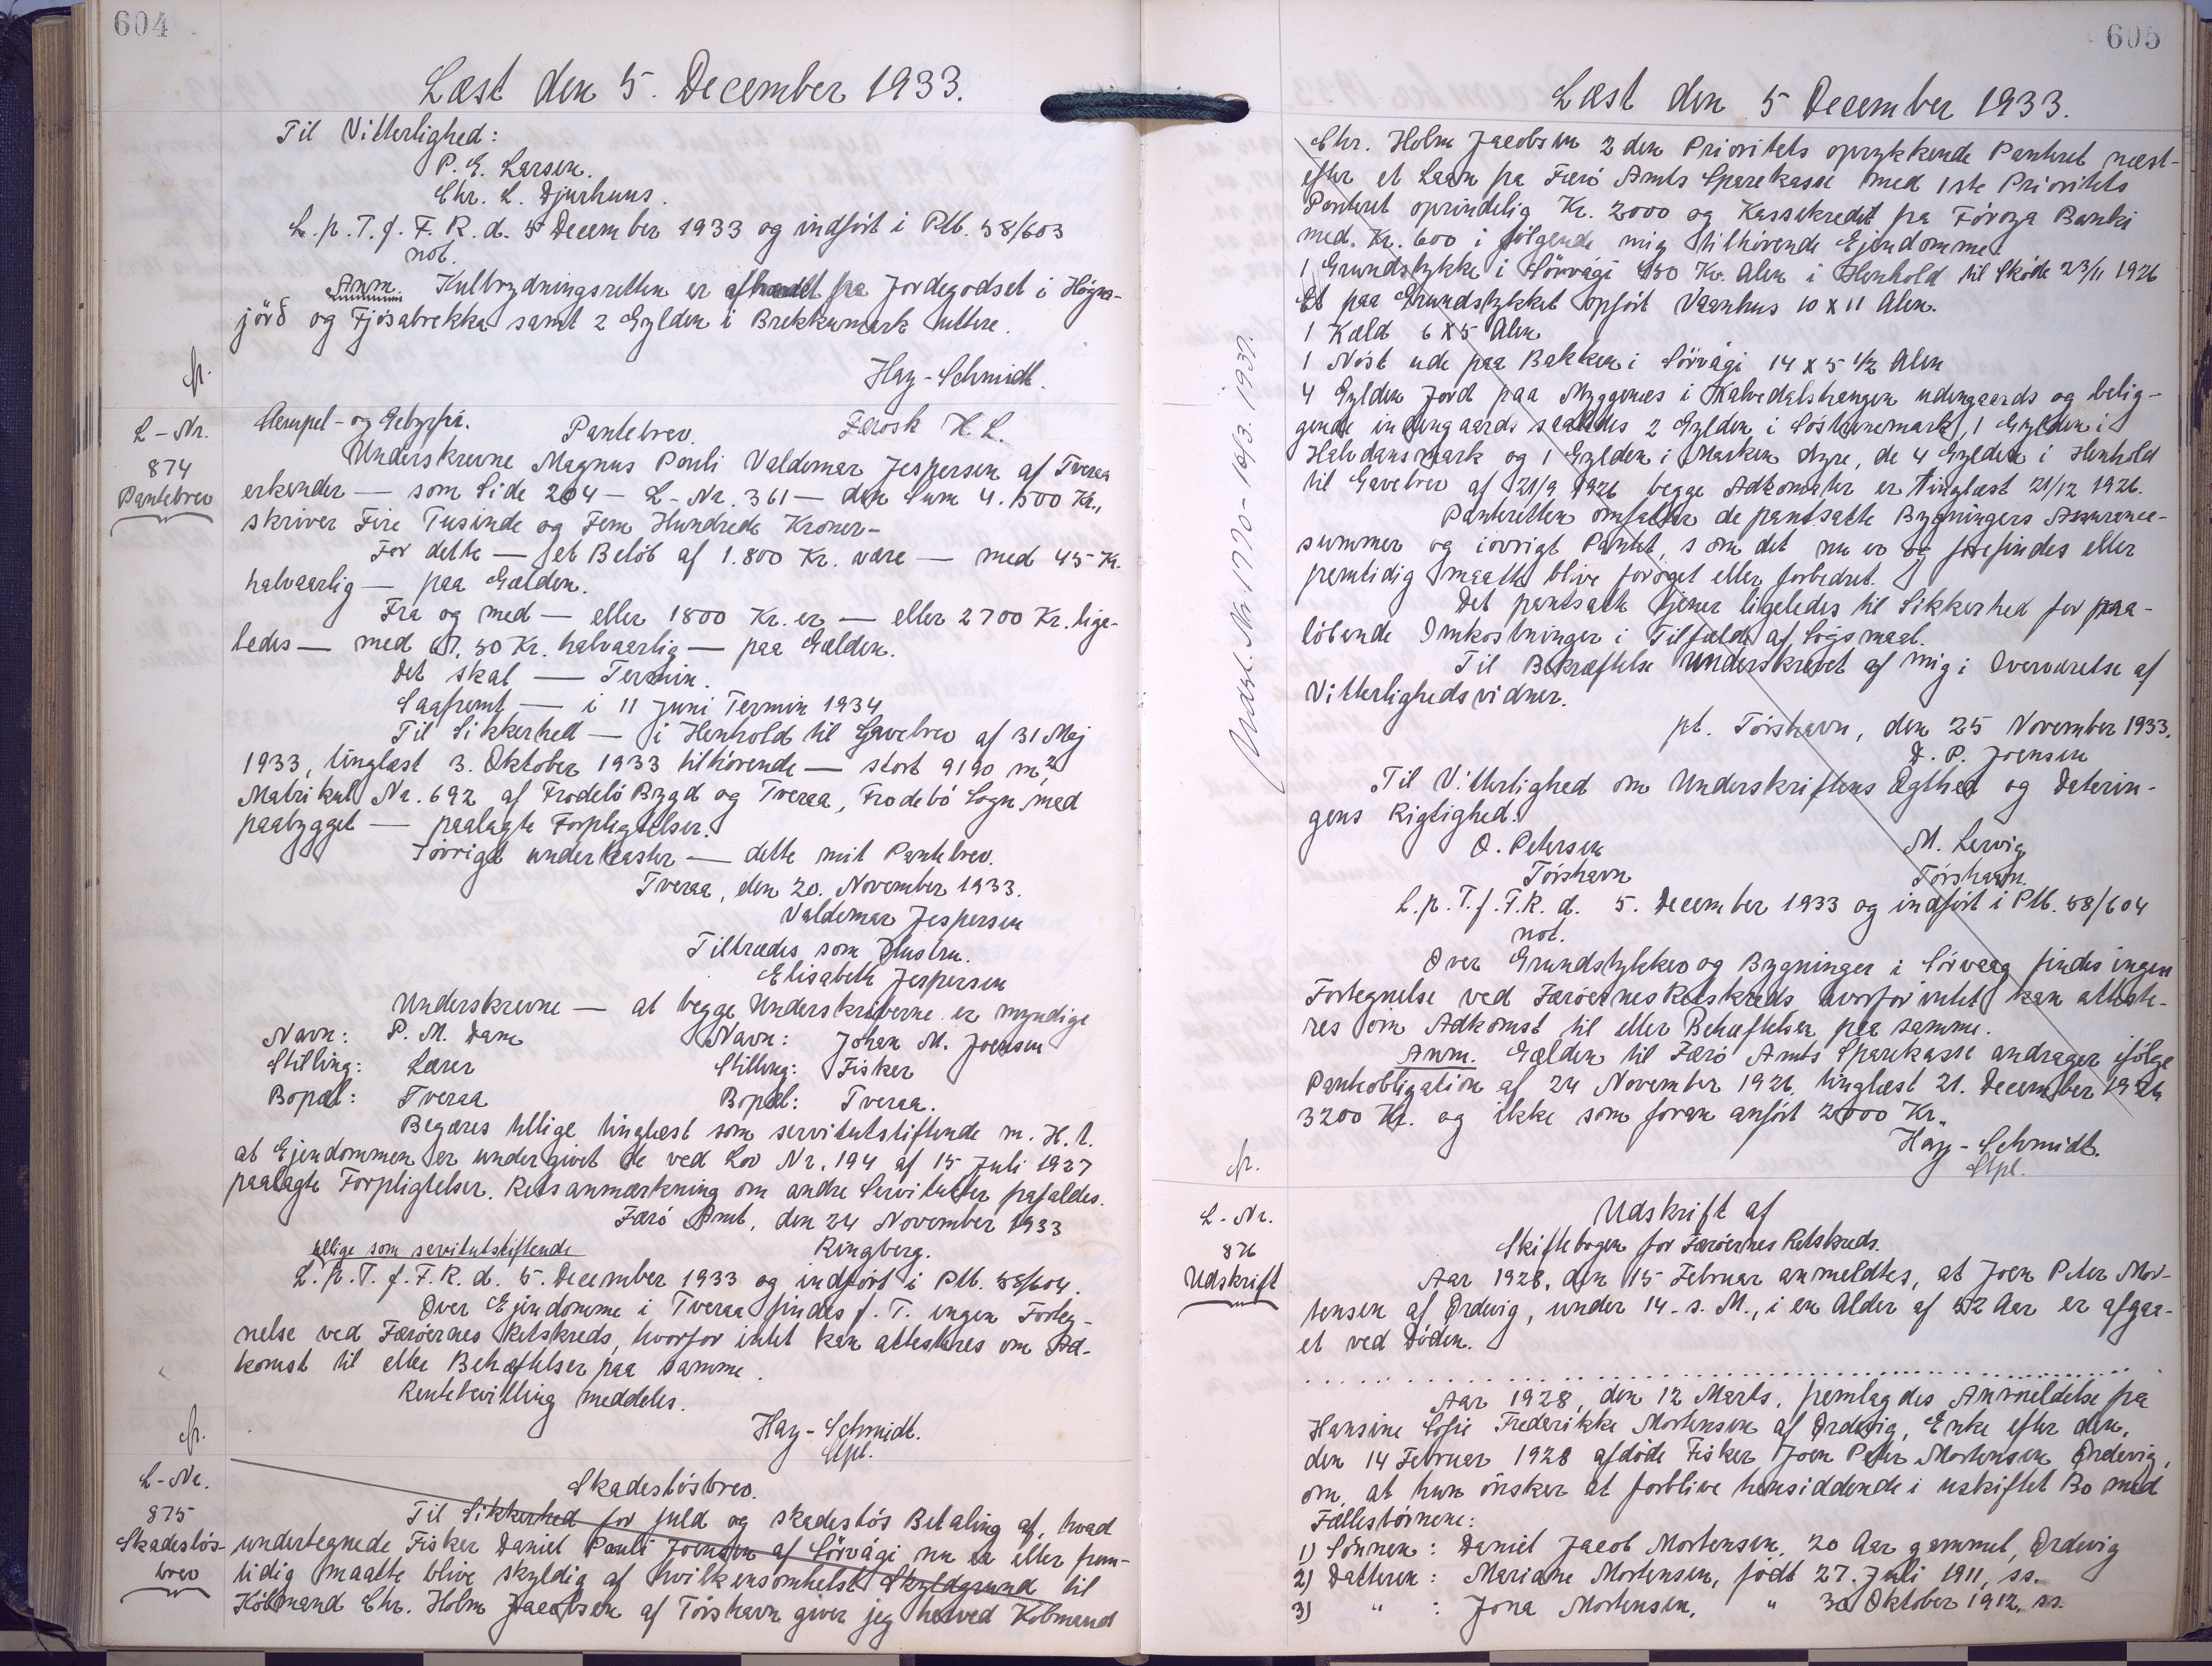 604
Læst den 5. December 1933.
Til Vitterlighed:
P. E. Larsen.
Chr. L. Djurhuus.
L. p. T. f. F. R. d. 5 December 1933 og indført i Ptb. 58/603
not.
Anm. Kulbrydningsretten er afhændet fra Jordegodset i Høgna-
jörð og Fjósabrekka samt 2 Gylden i Brekkumark nettere.
Hay-Schmidt.
L-Nr.
874
Pantebrev
Stempel- og Gebyrfri. Pantebrev. Færøsk H. L.
Underskrevne Magnus Pouli Valdemar Jespersen af Tveraa
erkender — som Side 204 — L-Nr. 361 — den Sum 4.500 Kr.,
skriver Fire Tusinde og Fem Hundrede Kroner-
For dette — et Beløb af 1.800 Kr. være — med 45 Kr.
halvaarlig — paa Gælden.
Fra og med — eller 1800 Kr. er — eller 2700 Kr. lige-
ledes — med 67,50 Kr. halvaarlig — paa Gælden.
Det skal — Termin.
Saafremt — i 11 Juni Termin 1934
Til Sikkerhed — i Henhold til Gavebrev af 31 Maj
1933, tinglæst 3. Oktober 1933 tilhörende — stort 9190 m²
Matrikul Nr. 692 af Frodebö Bygd og Tveraa, Frodebö Sogn med
paabygget — paalagte Forpligtelser.
Iövrigt underkaster — dette mit Pantebrev.
Tveraa, den 20. November 1933.
Valdemar Jespersen
Tiltrædes som Hustru.
Elisabeth Jespersen
Underskrevne — at begge Underskriverne er myndige
Navn: P. M. Dam Navn: Johan M. Joensen
Stilling: Lærer Stilling: Fisker
Bopæl: Tveraa Bopæl: Tveraa.
Begæres tillige tinglæst som servitutstiftende m. H. t.
at Ejendommen er undergivet de ved Lov Nr. 194 af 15 Juli 1927
paalagte Forpligtelser. Retsanmærkning om andre Servitutter frafaldes.
Færö Amt, den 24 November 1933
Ringberg.
tillige som servitutstiftende
L. p. T. f. F. R. d. 5. December 1933 og indført i Ptb. 58/604.
Over Ejendomme i Tveraa findes f. T. ingen Forteg-
nelse ved Færøernes Retskreds, hvorfor intet kan attesteres om Ad-
komst til eller Behæftelser paa samme.
Rentebevilling meddeles.
Hay-Schmidt.
Stpl.
L-Nr.
875
Skadesløs-
brev
Skadesløsbrev.
Til Sikkerhed for fuld og skadesløs Betaling af, hvad
undertegnede Fisker Daniel Pauli Joensen af Sörvági nu er eller frem-
tidig maatte blive skyldig af hvilkensomhelst Skyldgrund til
Købmand Chr. Holm Jacobsen af Tórshavn giver jeg herved Købmand
605
Læst den 5 December 1933.
Chr. Holm Jacobsen 2den Prioritets oprykkende Panteret næst-
efter et Laan fra Færö Amts Sparekasse med 1ste Prioritets
Panteret oprindelig Kr. 2000 og Kassekredit fra Föroya Banki
med Kr. 600 i følgende mig tilhörende Ejendomme.
1 Grundstykke i Sörvági 450 Kv. Alen i Henhold til Sköde 23/11 1926
Et paa Grundstykket opført Vaanhus 10 x 11 Alen.
1 Kæld 6 x 5 Alen
1 Nöst ude paa Bakken i Sörvági 14 x 5 1/2 Alen
4 Gylden Jord paa Myggenæs i Kalvedalshangen udengaards og belig-
gende indengaards saaledes 2 Gylden i Söstrenemark, 1 Gylden i
Halvdansmark og 1 Gylden i Marken Øyre, de 4 Gylden i Henhold
til Gavebrev af 21/9 1926 begge Adkomster er tinglæst 21/12 1926.
Panteretten omfatter de pantsatte Bygningers Assurance-
summer og iövrigt Pantet, som det nu er og forefindes eller
fremtidig maatte blive forøget eller forbedret.
Det pantsatte tjener ligeledes til Sikkerhed for paa-
löbende Omkostninger i Tilfælde af Søgsmaal.
Til Bekræftelse underskrevet af mig i Overværelse af
Vitterlighedsvidner.
pt. Tórshavn, den 25 November 1933.
D. P. Joensen
Til Vitterlighed om Underskriftens Ægthed og Daterin-
gens Rigtighed.
O. Petersen M. Lervig
Tórshavn Tórshavn.
L. p. T. f. F. R. d. 5. December 1933 og indført i Ptb. 58/604
not.
Over Grundstykker og Bygninger i Sörvaag findes ingen
Fortegnelse ved Færøernes Retskreds hvorfor intet kan atteste-
res om Adkomst til eller Behæftelser paa samme.
Anm. Gælden til Færö Amts Sparekasse andrager ifölge
Panteobligation af 24 November 1926 tinglæst 21. December 1926
3200 Kr. og ikke som foran anført 2000 Kr.
Hay-Schmidt.
Stpl.
Udsl. Nr. 1770 - 16/3. 1937.
L-Nr.
876
Udskrift
Udskrift af
Skiftebogen for Færøernes Retskreds.
Aar 1928, den 15 Februar anmeldtes, at Joen Peter Mor-
tensen af Ördevig, under 14. s. M., i en Alder af 52 Aar er afgaa-
et ved Døden.
Aar 1928, den 12 Marts, fremlagdes Anmeldelse fra
Hansine Sofie Frederikke Mortensen af Ördevig, Enke efter den,
den 14 Februar 1928 afdøde Fisker Joen Peter Mortensen Ördevig,
om, at hun ønsker at forblive hensiddende i uskiftet Bo med
Fællesbørnene:
1) Sönnen: Daniel Jacob Mortensen, 20 Aar gammel, Ördevig
2) Datteren: Mariane Mortensen, födt 27. Juli 1911, ss.
3) " : Jona Mortensen, " 30 Oktober 1912, ss.